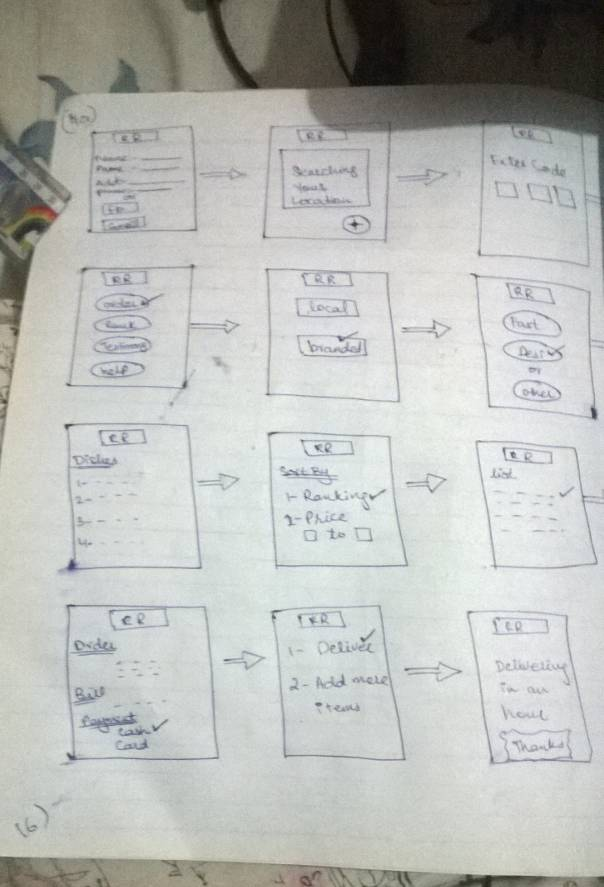 RR
Name
Phone
Add
or
FB
Gmail
RR
Searching
Your
Location
RR
Enter Code
RR
order
Rank
Testimony
help
RR
local
branded
RR
Fast
Desi
or
other
RR
Dishes
1-
2-
3-
4-
RR
Sort By
1- Ranking
2- Price
to
RR
list
RR
Order
Bill
Payment
Cash
Card
RR
1- Deliver
2- Add more
items
RR
Delivering
in an
hour
Thanks
(6)-